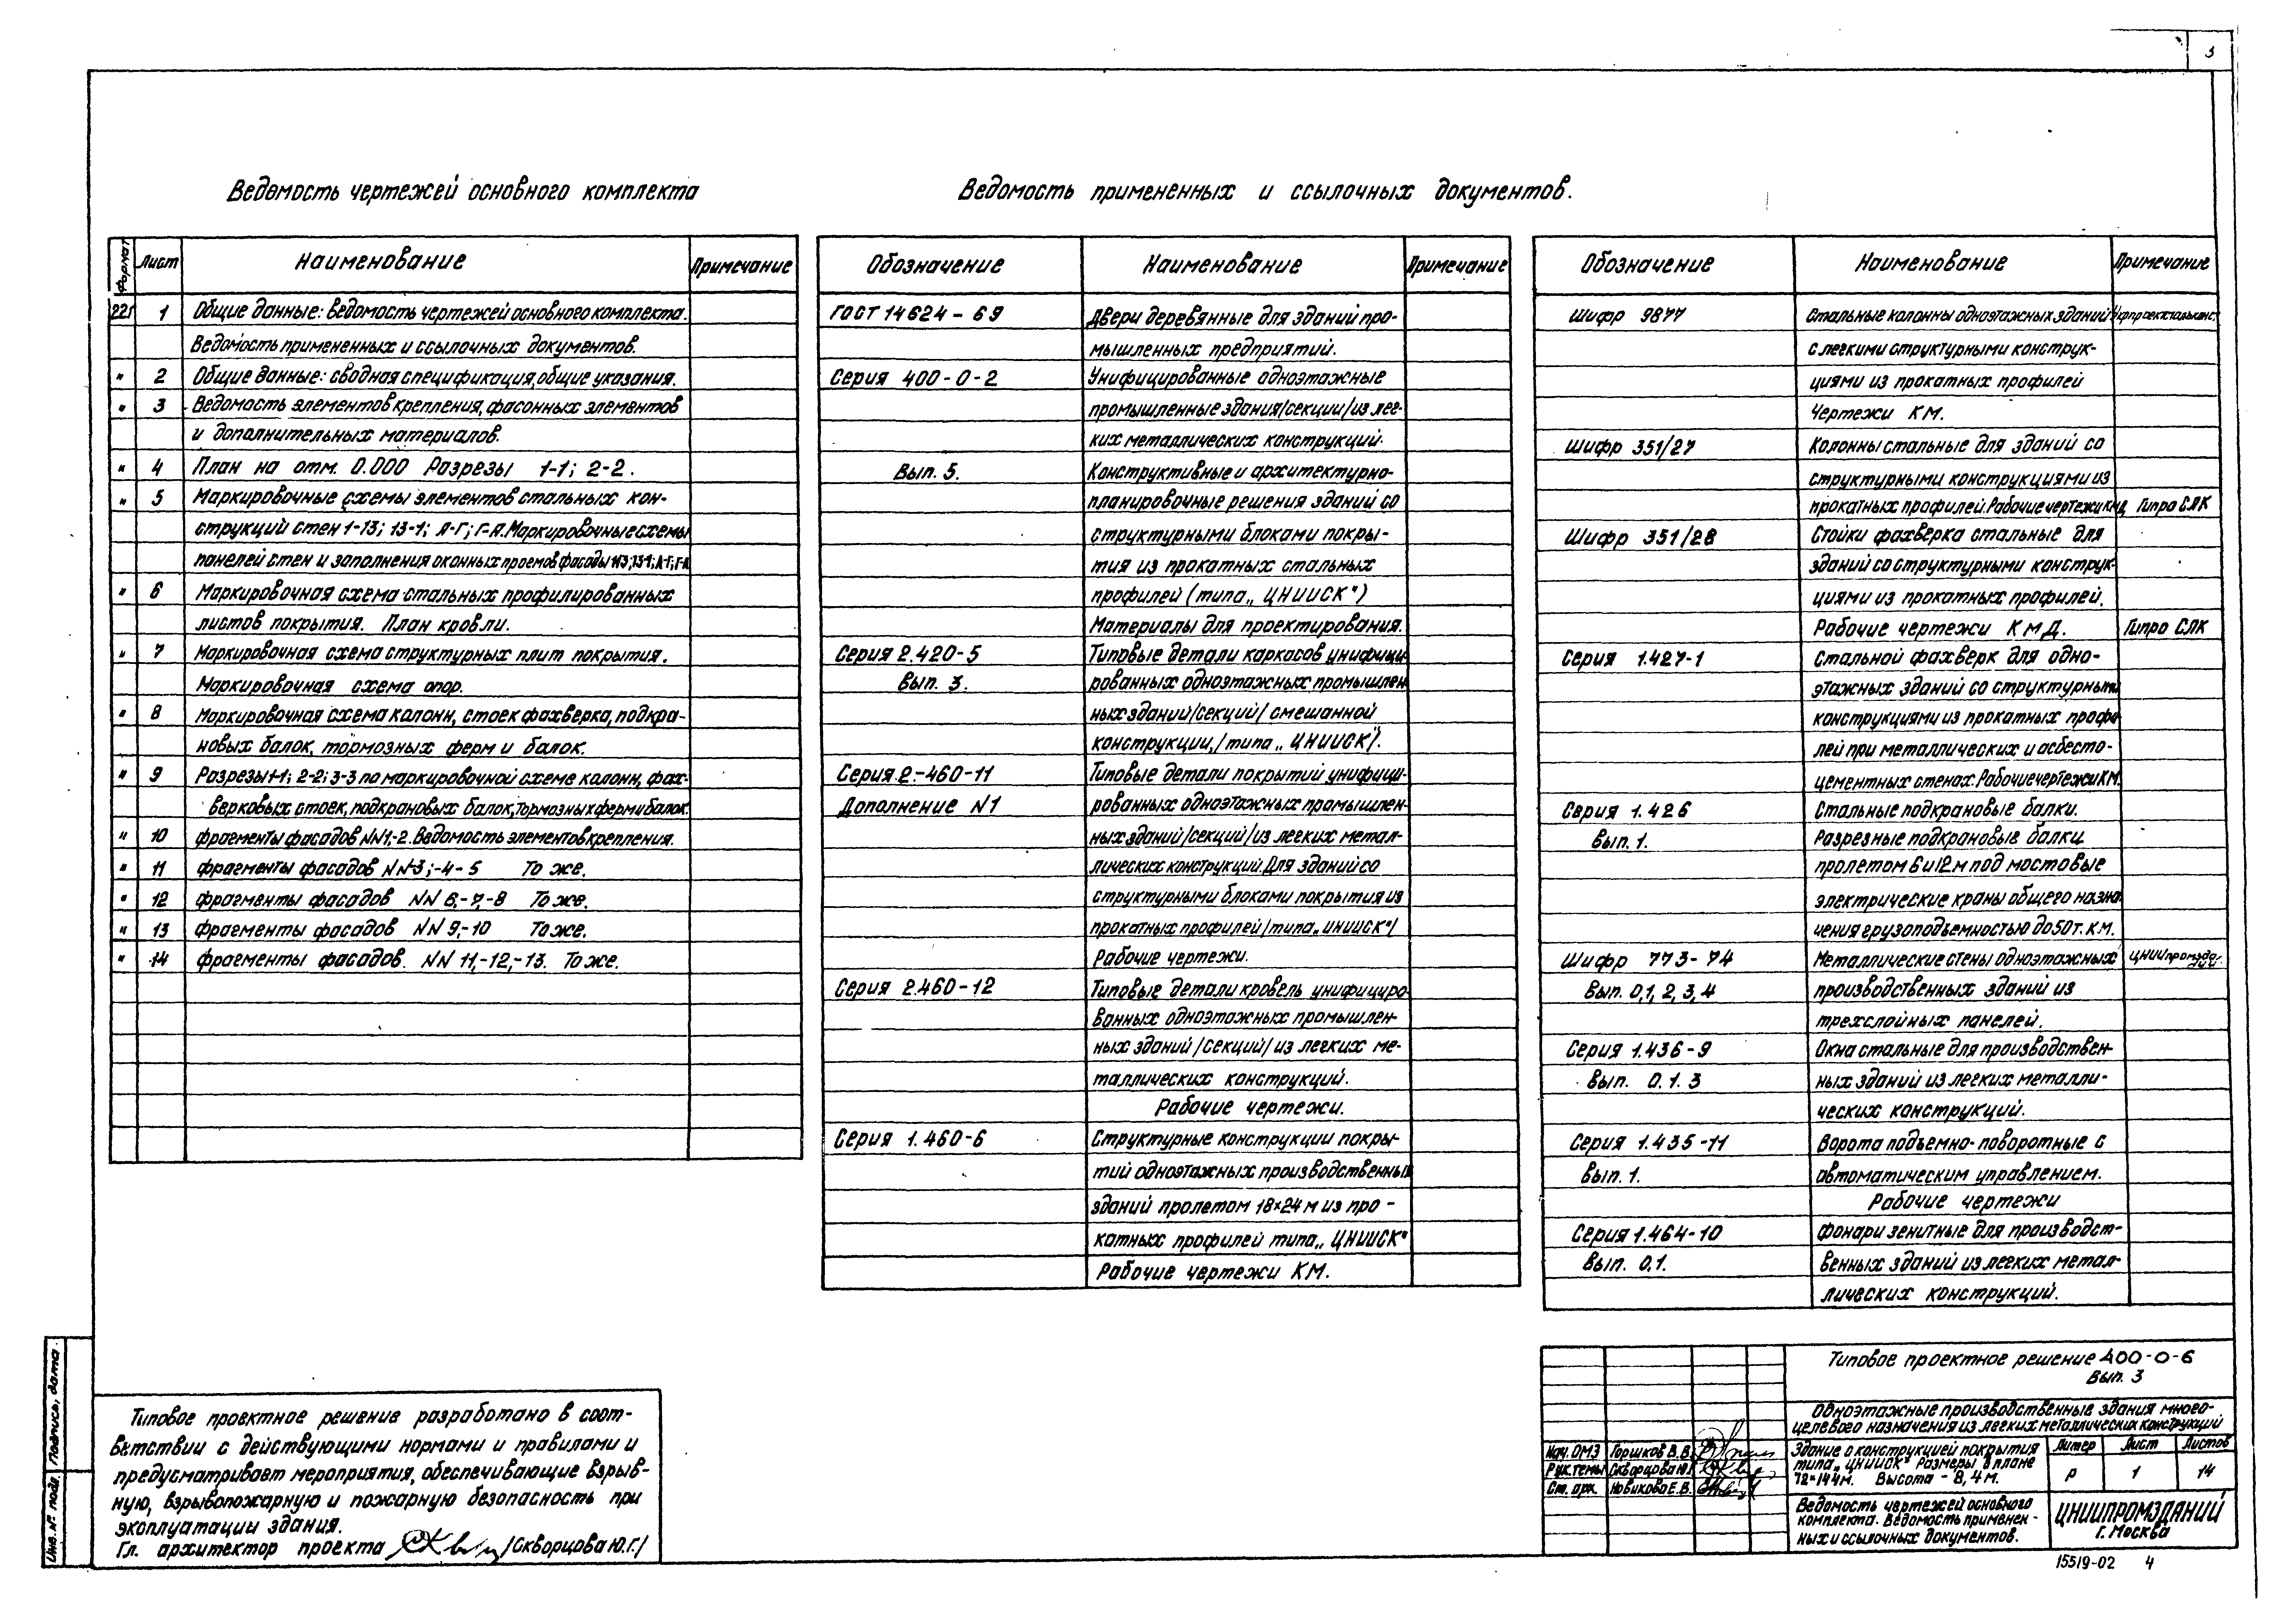 3
Ведомость чертежей основного комплекта
Формат Лист Наименование Примечание
22г 1 Общие данные: Ведомость чертежей основного комплекта.
Ведомость примененных и ссылочных документов.
" 2 Общие данные: сводная спецификация, общие указания.
" 3 Ведомость элементов крепления, фасонных элементов
и дополнительных материалов.
" 4 План на отм. 0.000 Разрезы 1-1; 2-2.
" 5 Маркировочные схемы элементов стальных кон-
струкций стен 1-13; 13-1; А-Г; Г-А. Маркировочные схемы
панелей стен и заполнения оконных проемов фасады 1-13; 13-1; А-Г; Г-А
" 6 Маркировочная схема стальных профилированных
листов покрытия. План кровли.
" 7 Маркировочная схема структурных плит покрытия.
Маркировочная схема опор.
" 8 Маркировочная схема колонн, стоек фахверка, подкра-
новых балок, тормозных ферм и балок.
" 9 Разрезы 1-1; 2-2; 3-3 по маркировочной схеме колонн, фах-
верковых стоек, подкрановых балок, тормозных ферм и балок.
" 10 Фрагменты фасадов NN1,-2. Ведомость элементов крепления.
" 11 Фрагменты фасадов NN3;-4-5 То же.
" 12 Фрагменты фасадов NN 6,-7,-8 То же.
" 13 Фрагменты фасадов NN 9,-10 То же.
" 14 Фрагменты фасадов. NN 11,-12,-13. То же.
Ведомость примененных и ссылочных документов.
Обозначение Наименование Примечание
ГОСТ 14624-69 Двери деревянные для зданий про-
мышленных предприятий.
Серия 400-0-2 Унифицированные одноэтажные
промышленные здания/секции/из лег-
ких металлических конструкций.
Вып. 5. Конструктивные и архитектурно-
планировочные решения зданий со
структурными блоками покры-
тия из прокатных стальных
профилей (типа „ЦНИИСК")
Материалы для проектирования.
Серия 2.420-5 Типовые детали каркасов унифици-
Вып. 3. рованных одноэтажных промышлен-
ных зданий/секций/ смешанной
конструкции, /типа „ЦНИИСК"/.
Серия 2.-460-11 Типовые детали покрытий унифици-
Дополнение N1 рованных одноэтажных промышлен-
ных зданий/секций/из легких метал-
лических конструкций. Для зданий со
структурными блоками покрытия из
прокатных профилей /типа „ЦНИИСК"/
Рабочие чертежи.
Серия 2.460-12 Типовые детали кровель унифициро-
ванных одноэтажных промышлен-
ных зданий /секций/ из легких ме-
таллических конструкций.
Рабочие чертежи.
Серия 1.460-6 Структурные конструкции покры-
тий одноэтажных производственных
зданий пролетом 18×24 м из про-
катных профилей типа „ЦНИИСК"
Рабочие чертежи КМ.
Обозначение Наименование Примечание
Шифр 9877 Стальные колонны одноэтажных зданий
с легкими структурными конструк-
циями из прокатных профилей
Чертежи КМ.
Шифр 351/27 Колонны стальные для зданий со
структурными конструкциями из
прокатных профилей. Рабочие чертежи КМД Гипро СЛК
Шифр 351/28 Стойки фахверка стальные для
зданий со структурными конструк-
циями из прокатных профилей.
Рабочие чертежи КМД. Гипро СЛК
Серия 1.427-1 Стальной фахверк для одно-
этажных зданий со структурными
конструкциями из прокатных профи-
лей при металлических и асбесто-
цементных стенах. Рабочие чертежи КМ.
Серия 1.426 Стальные подкрановые балки.
Вып. 1. Разрезные подкрановые балки
пролетом 6 и 12 м под мостовые
электрические краны общего назна-
чения грузоподъемностью до 50 т. КМ.
Шифр 773-74 Металлические стены одноэтажных ЦНИИпромзда-
ний.
Вып. 0,1,2,3,4 производственных зданий из
трехслойных панелей.
Серия 1.436-9 Окна стальные для производствен-
Вып. 0.1.3 ных зданий из легких металли-
ческих конструкций.
Серия 1.435-11 Ворота подъемно-поворотные с
Вып. 1. автоматическим управлением.
Рабочие чертежи
Серия 1.464-10 Фонари зенитные для производст-
Вып. 0,1. венных зданий из легких метал-
лических конструкций.
Типовое проектное решение разработано в соот-
ветствии с действующими нормами и правилами и
предусматривает мероприятия, обеспечивающие взрыв-
ную, взрывопожарную и пожарную безопасность при
эксплуатации здания.
Гл. архитектор проекта /Скворцова Ю.Г./
Подпись, дата
Инв. № подл.
Типовое проектное решение 400-0-6
Вып. 3
Одноэтажные производственные здания много-
целевого назначения из легких металлических конструкций
Нач. ОМЗ Горшков В.В.
Рук. темы Скворцова Ю.Г.
Ст. арх. Новикова Е.В.
Здание с конструкцией покрытия
типа „ЦНИИСК" Размеры в плане
72×144м. Высота - 8,4 м.
Литер Лист Листов
Р 1 14
Ведомость чертежей основного
комплекта. Ведомость применен-
ных и ссылочных документов.
ЦНИИПРОМЗДАНИЙ
г. Москва
15519-02 4